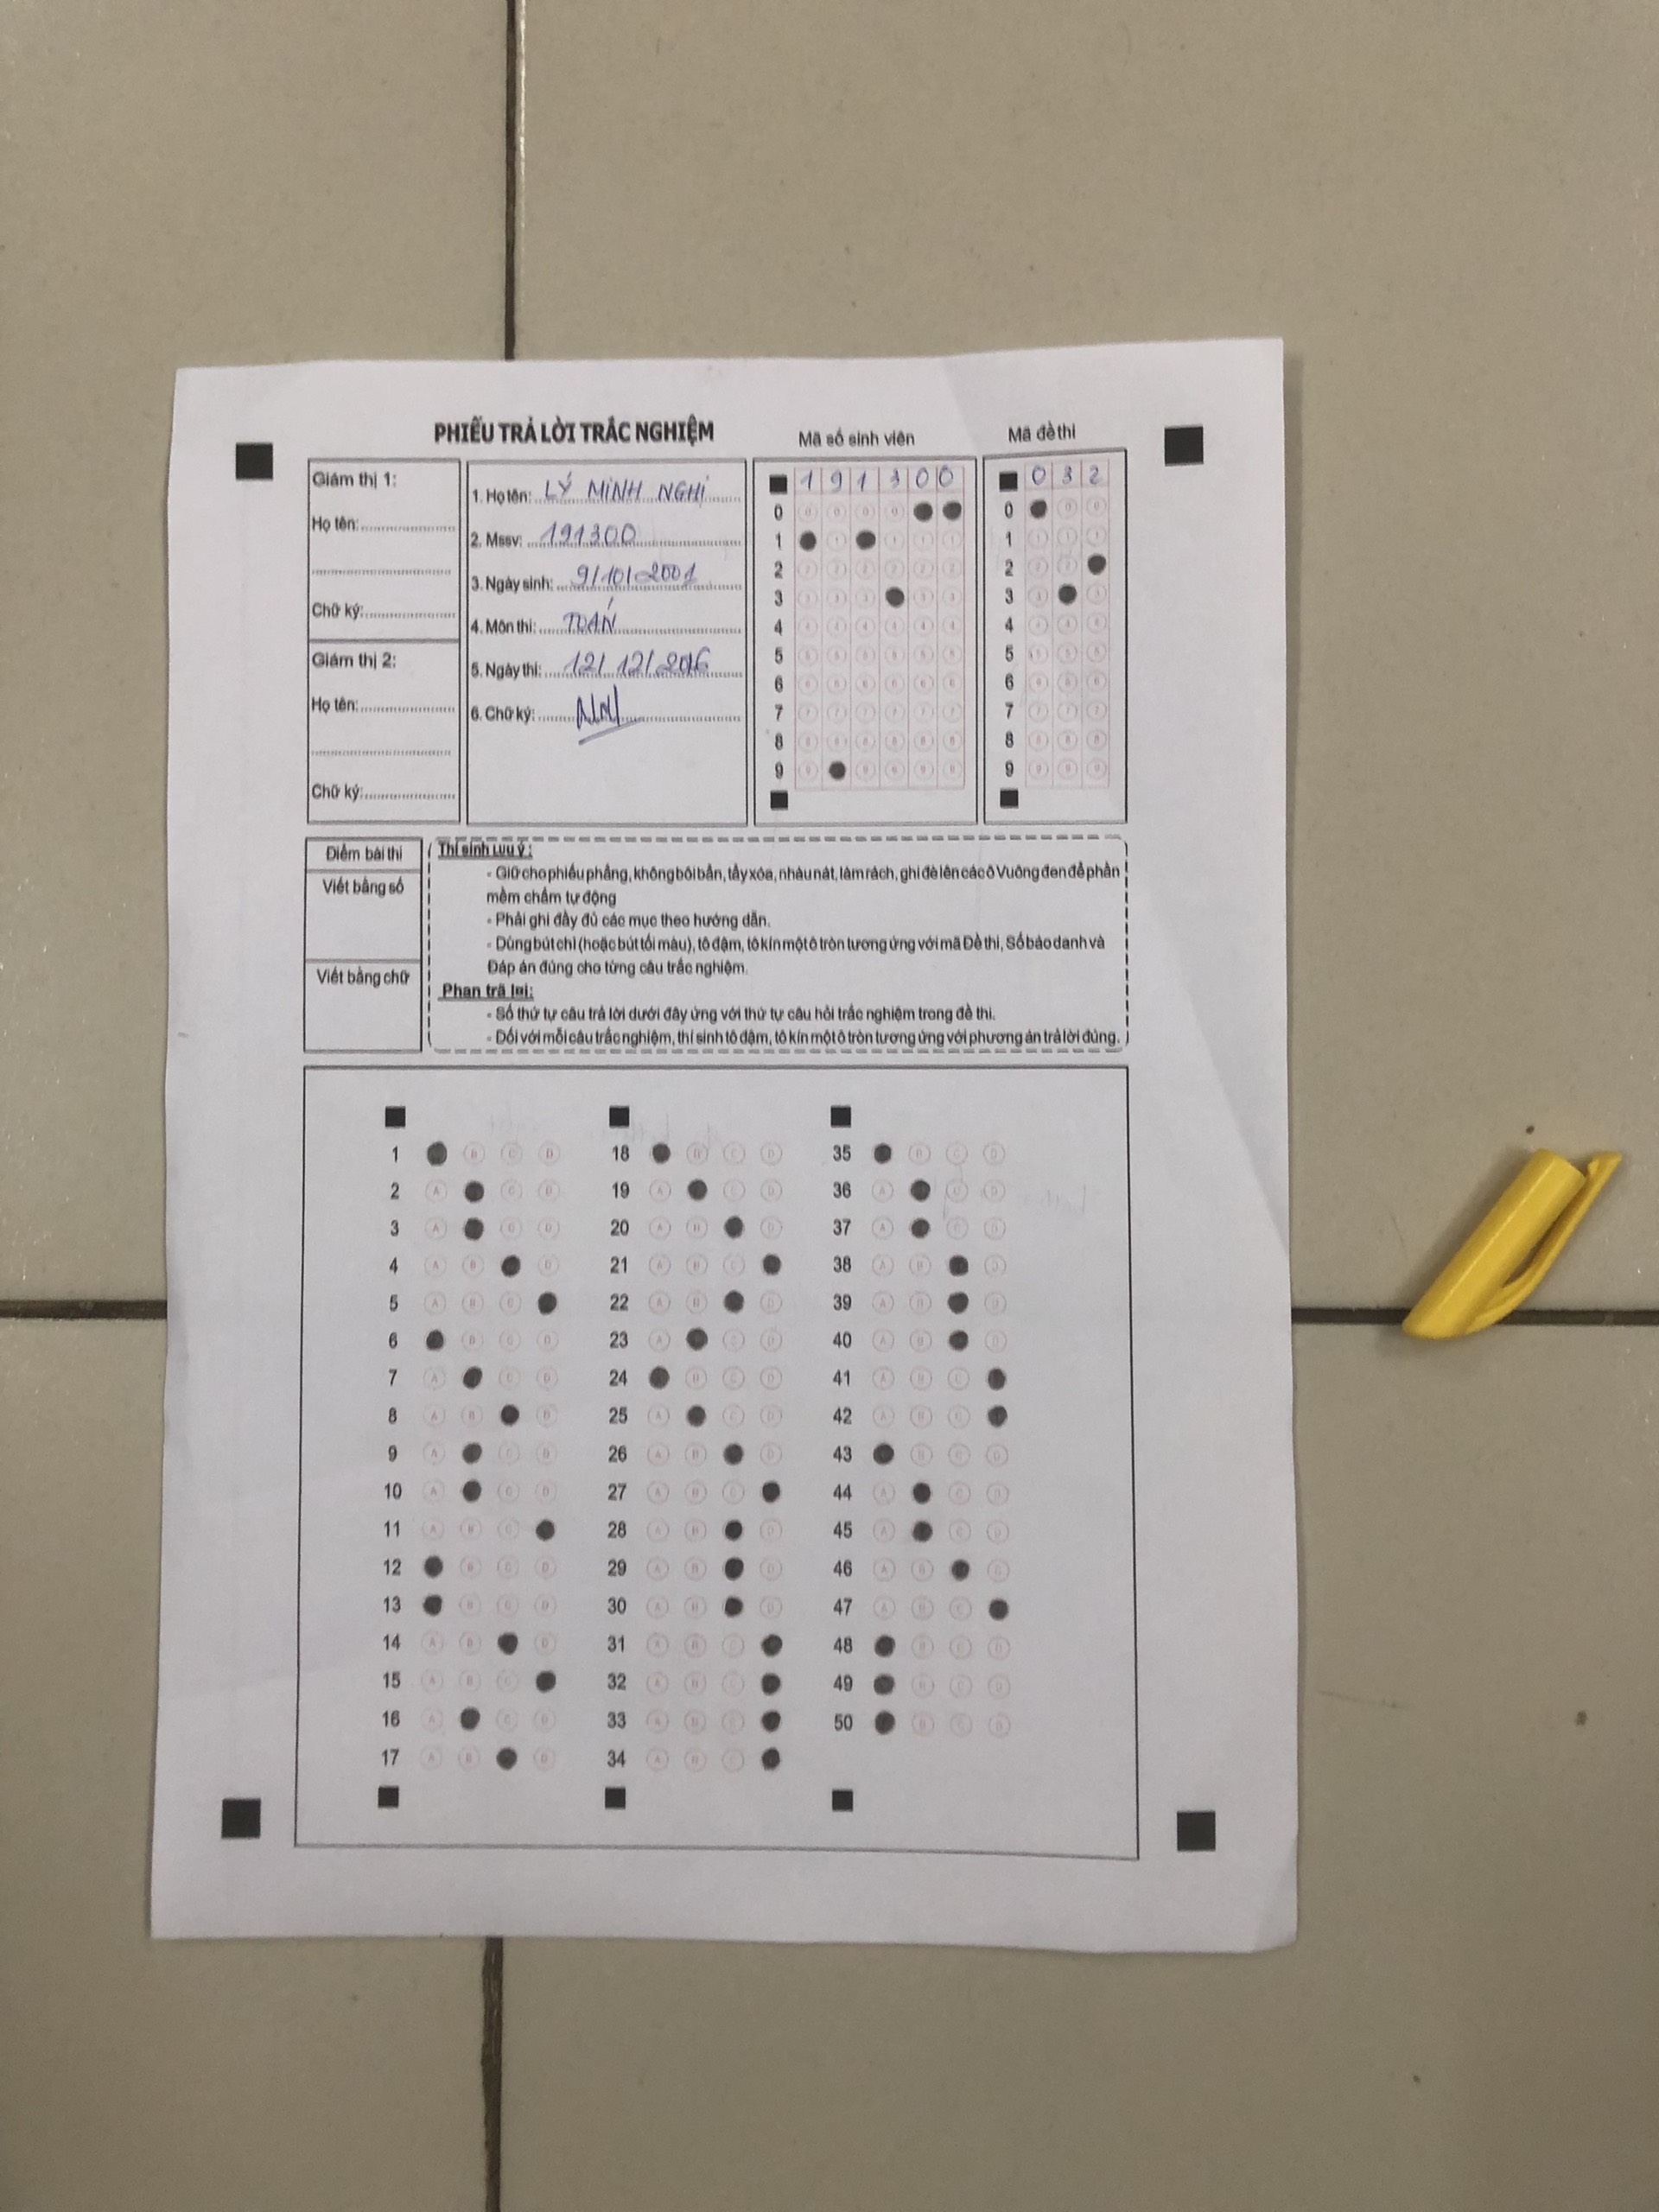 PHIẾU TRẢ LỜI TRẮC NGHIỆM
Mã số sinh viên
Mã đề thi
Giám thị 1:
Họ tên:
Chữ ký:
Giám thị 2:
Họ tên:
Chữ ký:
1. Họ tên: LÝ MINH NGHI
2. Mssv: 191300
3. Ngày sinh: 9/10/2001
4. Môn thi: TOÁN
5. Ngày thi: 12/12/2016
6. Chữ ký:
1 9 1 3 0 0
0
1
2
3
4
5
6
7
8
9
0 3 2
0
1
2
3
4
5
6
7
8
9
Điểm bài thi
Viết bằng số
Viết bằng chữ
Thí sinh lưu ý:
- Giữ cho phiếu phẳng, không bôi bẩn, tẩy xóa, nhàu nát, làm rách, ghi đè lên các ô Vuông đen để phần
mềm chấm tự động
- Phải ghi đầy đủ các mục theo hướng dẫn.
- Dùng bút chì (hoặc bút tối màu), tô đậm, tô kín một ô tròn tương ứng với mã Đề thi, Số báo danh và
Đáp án đúng cho từng câu trắc nghiệm.
Phan trã lơi:
- Số thứ tự câu trả lời dưới đây ứng với thứ tự câu hỏi trắc nghiệm trong đề thi.
- Đối với mỗi câu trắc nghiệm, thí sinh tô đậm, tô kín một ô tròn tương ứng với phương án trả lời đúng.
1 B C D
2 A C D
3 A C D
4 A B D
5 A B C
6 B C D
7 A C D
8 A B D
9 A C D
10 A C D
11 A B C
12 B C D
13 B C D
14 A B D
15 A B C
16 A C D
17 A B D
18 B C D
19 A C D
20 A B D
21 A B C
22 A B D
23 A C D
24 B C D
25 A C D
26 A B D
27 A B C
28 A B D
29 A B D
30 A B D
31 A B C
32 A B C
33 A B C
34 A B C
35 B C D
36 A C D
37 A C D
38 A B D
39 A B D
40 A B D
41 A B C
42 A B C
43 B C D
44 A C D
45 A C D
46 A B D
47 A B C
48 B C D
49 B C D
50 B C D